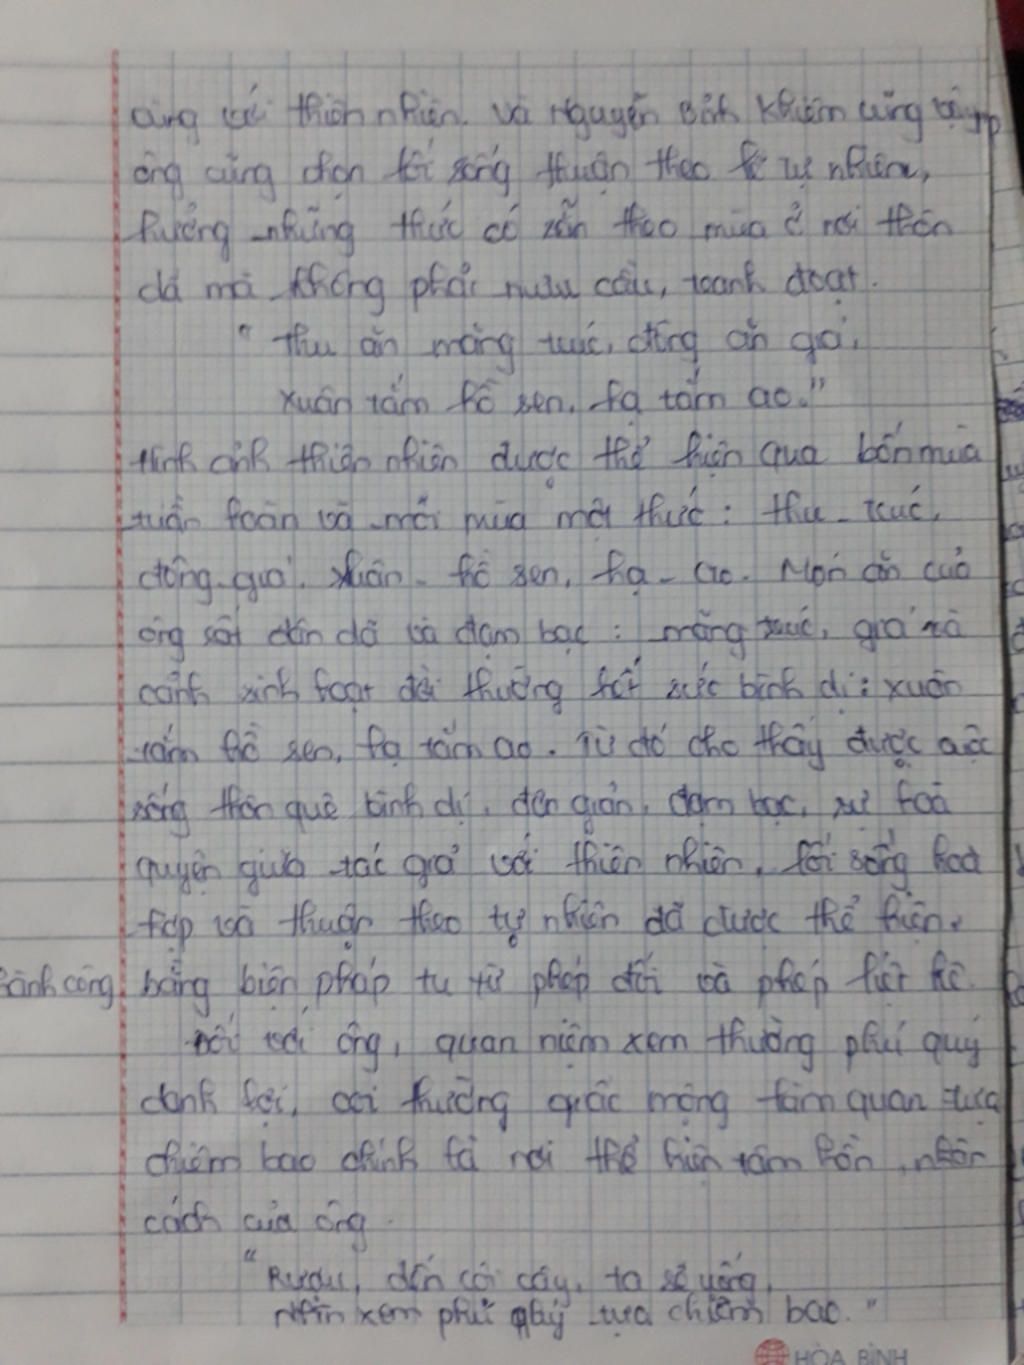 cùng với thiên nhiên. Và Nguyễn Bỉnh Khiêm cũng vậy,
ông cũng chọn lối sống thuận theo lẽ tự nhiên,
hưởng những thức có sẵn theo mùa ở nơi thôn
dã mà không phải mưu cầu, tranh đoạt.
"Thu ăn măng trúc, đông ăn giá,
Xuân tắm hồ sen, hạ tắm ao."
Hình ảnh thiên nhiên được thể hiện qua bốn mùa
tuần hoàn và mỗi mùa một thức: thu - trúc,
đông - giá, xuân - hồ sen, hạ - ao. Món ăn của
ông rất dân dã và đạm bạc: măng trúc, giá và
cảnh sinh hoạt đời thường hết sức bình dị: xuân
tắm hồ sen, hạ tắm ao. Từ đó cho thấy được cuộc
sống thôn quê bình dị, đơn giản, đạm bạc, sự hoà
quyện giữa tác giả với thiên nhiên, lối sống hoà
hợp và thuận theo tự nhiên đã được thể hiện
thành công bằng biện pháp tu từ phép đối và phép liệt kê.
Đối với ông, quan niệm xem thường phú quý
danh lợi, coi thường giấc mộng làm quan tựa
chiêm bao chính là nơi thể hiện tâm hồn, nhân
cách của ông.
"Rượu, đến cội cây, ta sẽ uống,
Nhìn xem phú quý tựa chiêm bao."
HÒA BÌNH